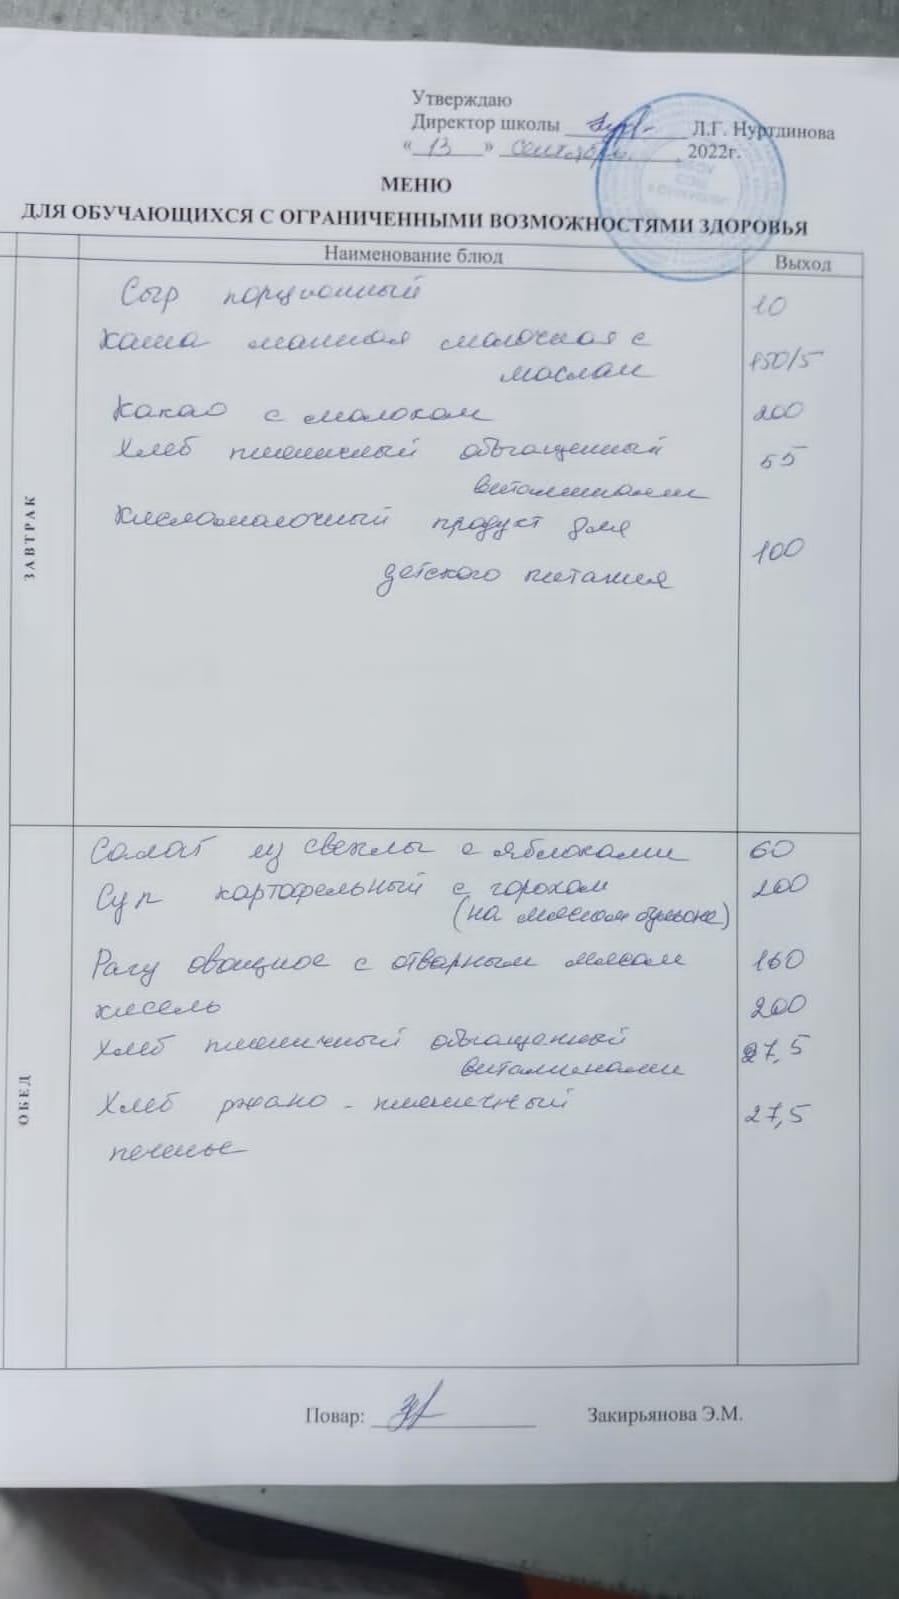 Утверждаю
Директор школы Л.Г. Нуртдинова
« 13 » сентября 2022г.
МЕНЮ
ДЛЯ ОБУЧАЮЩИХСЯ С ОГРАНИЧЕННЫМИ ВОЗМОЖНОСТЯМИ ЗДОРОВЬЯ
Наименование блюд Выход
ЗАВТРАК
Сыр порционный 10
Каша манная молочная с
маслом 150/5
Какао с молоком 200
Хлеб пшеничный обогащенный 55
витаминами
Кисломолочный продукт для
детского питания 100
ОБЕД
Салат из свеклы с яблоками 60
Суп картофельный с горохом 200
(на мясном бульоне)
Рагу овощное с отварным мясом 160
кисель 200
Хлеб пшеничный обогащенный 27,5
витаминами
Хлеб ржано-пшеничный 27,5
печенье
Повар: Закирьянова Э.М.